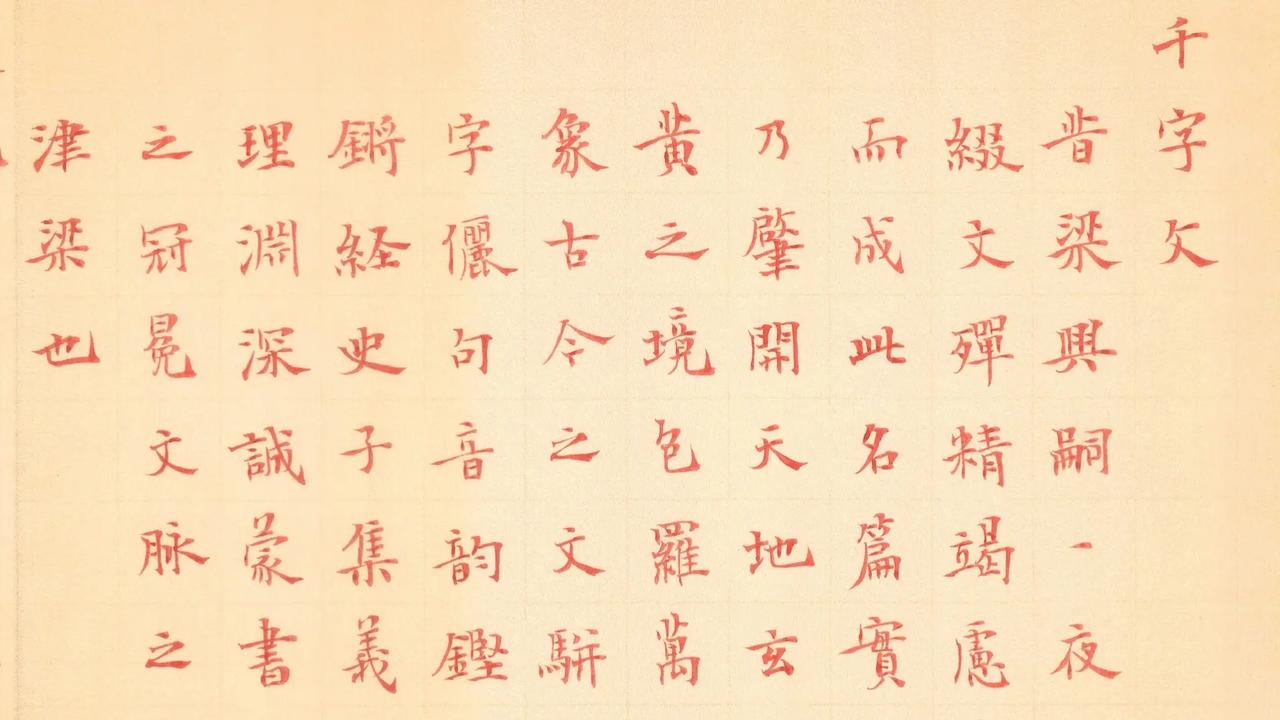 千字文
昔梁興嗣一夜
綴文殫精竭慮
而成此名篇實
乃肇開天地玄
黄之境包羅萬
象古今之文駢
字儷句音韵鏗
鏘経史子集義
理淵深誠蒙書
之冠冕文脉之
津梁也